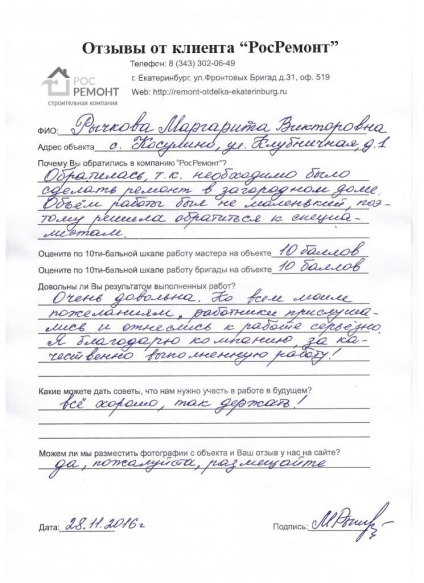 Отзывы от клиента “РосРемонт”
Телефон: 8 (343) 302-06-49
г. Екатеринбург, ул.Фронтовых Бригад д.31, оф. 519
Web: http://remont-otdelka-ekaterinburg.ru
РОС
РЕМОНТ
строительная компания
ФИО: Рычкова Маргарита Викторовна
Адрес объекта о. Косулино, ул. Клубничная, д.1
Почему Вы обратились в компанию "РосРемонт"?
Обратилась, т.к. необходимо было
сделать ремонт в загородном доме.
Объём работы был не маленький, поэ-
тому решила обратиться к специа-
листам.
Оцените по 10ти-бальной шкале работу мастера на объекте 10 баллов
Оцените по 10ти-бальной шкале работу бригады на объекте 10 баллов
Довольны ли Вы результатом выполненных работ?
Очень довольна. Ко всем моим
пожеланиям, работники прислуша-
лись и отнеслись к работе серьёзно.
Я благодарю компанию, за ка-
чественно выполненную работу!
Какие можете дать советы, что нам нужно учесть в работе в будущем?
всё хорошо, так держать!
Можем ли мы разместить фотографии с объекта и Ваш отзыв у нас на сайте?
да, пожалуйста, размещайте
Дата: 28.11.2016г Подпись: